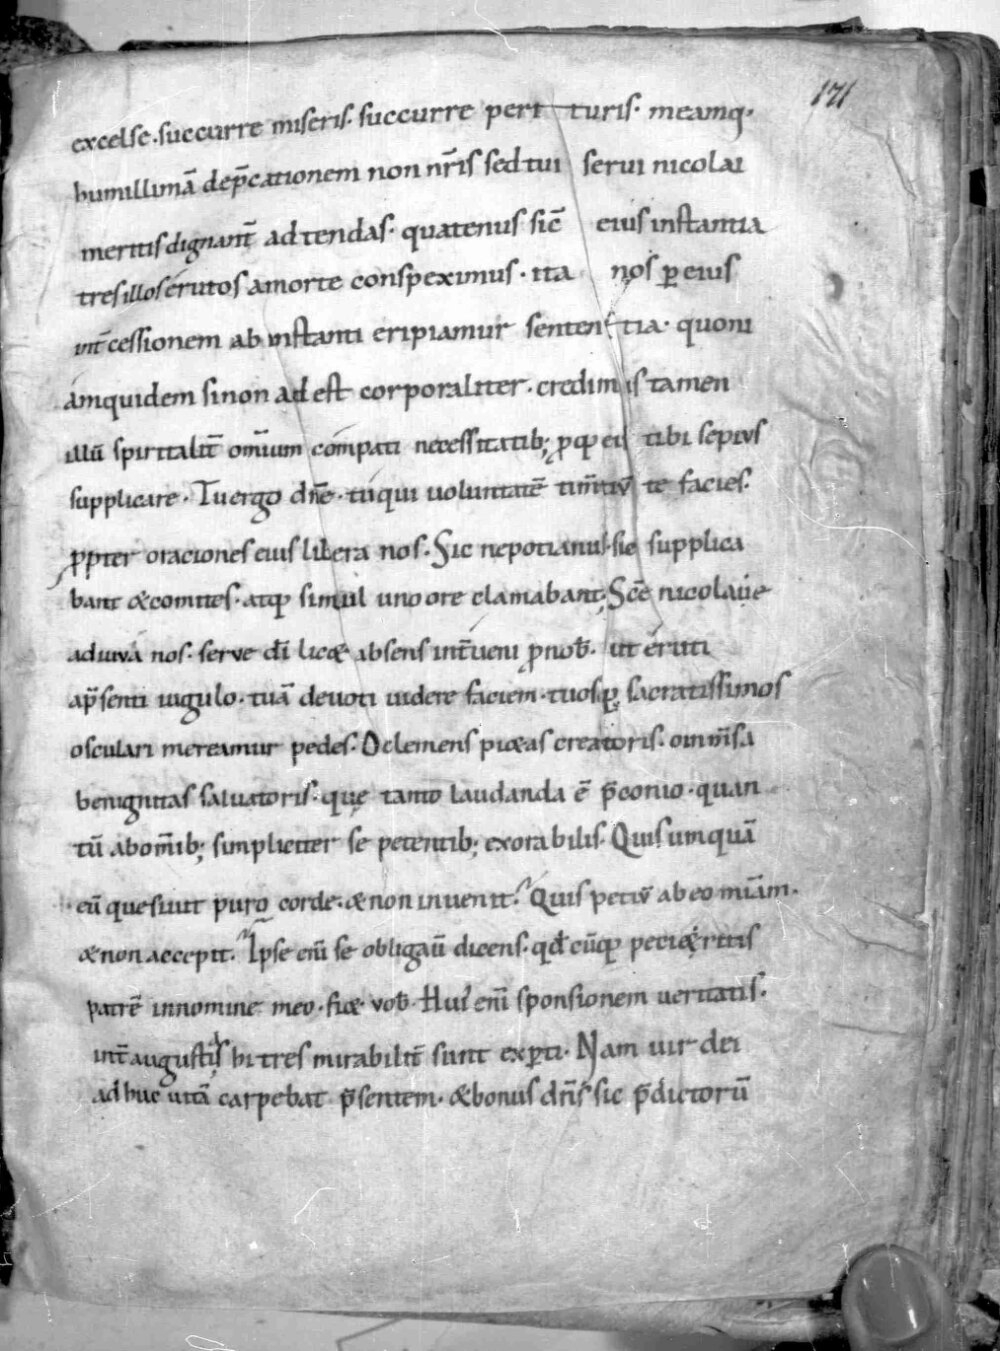 171
excelse. succurre miseris. succurre peri turis. meamq.
humillimā dep̄cationem non nr̄is sed tui servi nicolai
meritis dignant̄ ad tendas. quatenus sic̄ eius instantia
tres illos erutos a morte conspeximus. ita nos ꝑ eius
int̄cessionem ab instanti eripiamur senten tia. quoni
am quidem si non ad est corporaliter. credimus tamen
illū spiritalit̄ om̄ium compati necessitatib; ꝓ q̨ eis tibi sepius
supplicare. Tu ergo dn̄e. tu qui voluntatē tim̄tiū te facies.
ꝓpter oraciones eius libera nos. Sic nepotianus. sic supplica
bant & comites. atq̨ simul uno ore clamabant; Sc̄e nicolaue
adiuva nos. serve dī lic& absens int̄veni ꝓ nob̄. ut eruti
a p̄senti vigulo. tuā devoti videre faciem. tuosq̨ sacratissimos
osculari mereamur pedes. O clemens pi&as creatoris. o imm̄sa
benignitas salvatoris. que tanto laudanda ē p̄conio. quan
tū ab om̄ib; simpliciter se petentib; exorabilis. Quis umquā
eū quesivit puro corde. & non invenit? Quis petiv̄ ab eo mīam.
& non accepit? Ipse eni se obligav̄ dicens. qd̄ cūq̨ peti&ritis
patrē in nomine meo. fi&. vob̄. Hui' eni sponsionem veritatis.
int̄ augustiis hi tres mirabilit̄ sunt exꝑti. Nam vir dei
ad huc vitā carpebat p̄sentem. & bonus dn̄s sic p̄dictorū